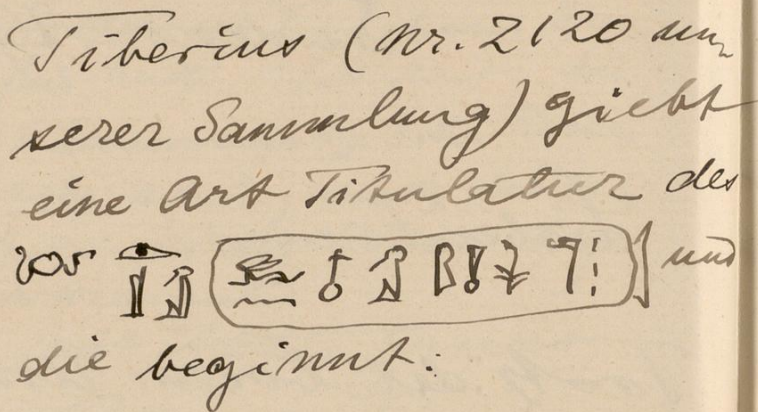 Tiberius (Nr. 2120 un-
serer Sammlung) giebt
eine Art Titulatur des
und
die beginnt: